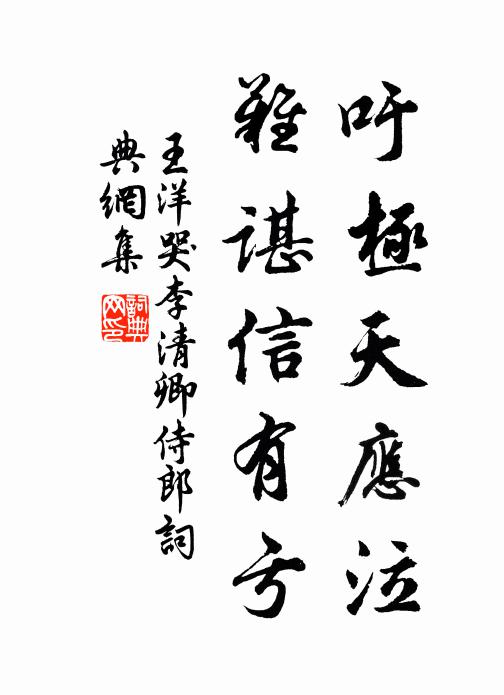 吁極天應泣
難諶信有亏
王洋哭李清卿侍郎詞
典網集
詞典
网印